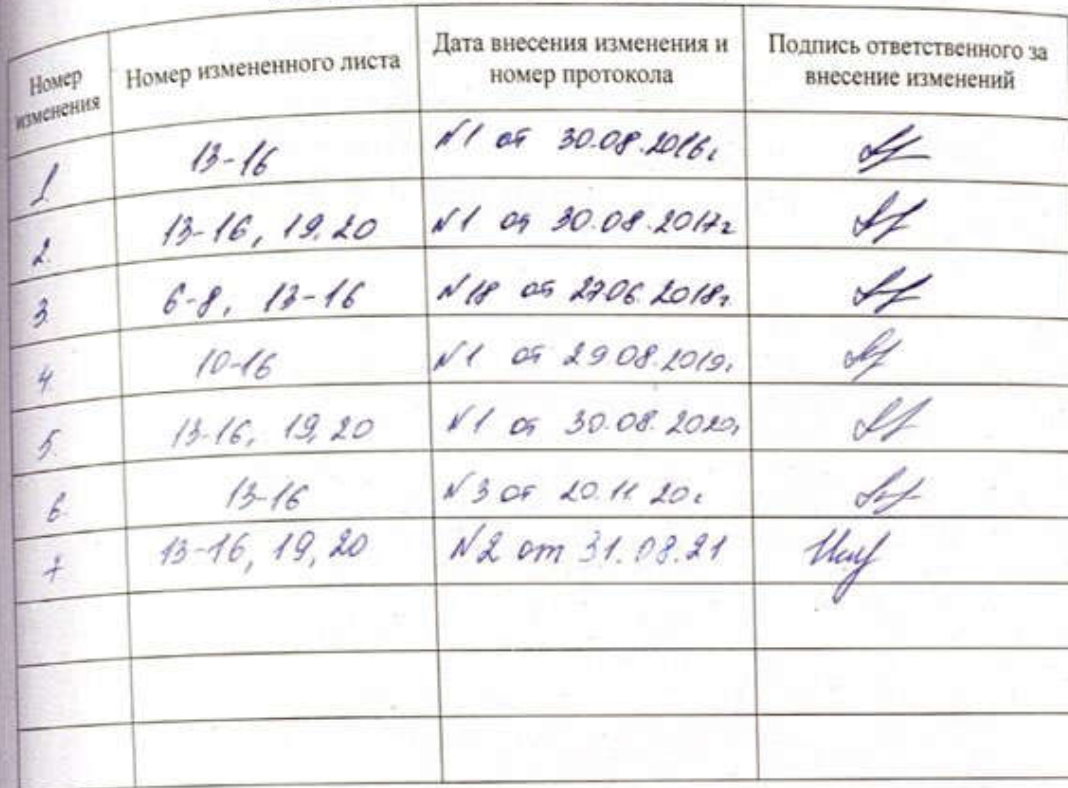 Номер изменения Номер измененного листа Дата внесения изменения и номер протокола Подпись ответственного за внесение изменений
1. 13-16 N1 от 30.08.2016г
2. 13-16, 19,20 N1 от 30.08.2017г
3. 6-8, 13-16 N18 от 27.06.2018г
4. 10-16 N1 от 29.08.2019г
5. 13-16, 19,20 N1 от 30.08.2020г
6. 13-16 N3 от 20.11.20г
7 13-16, 19,20 N2 от 31.08.21